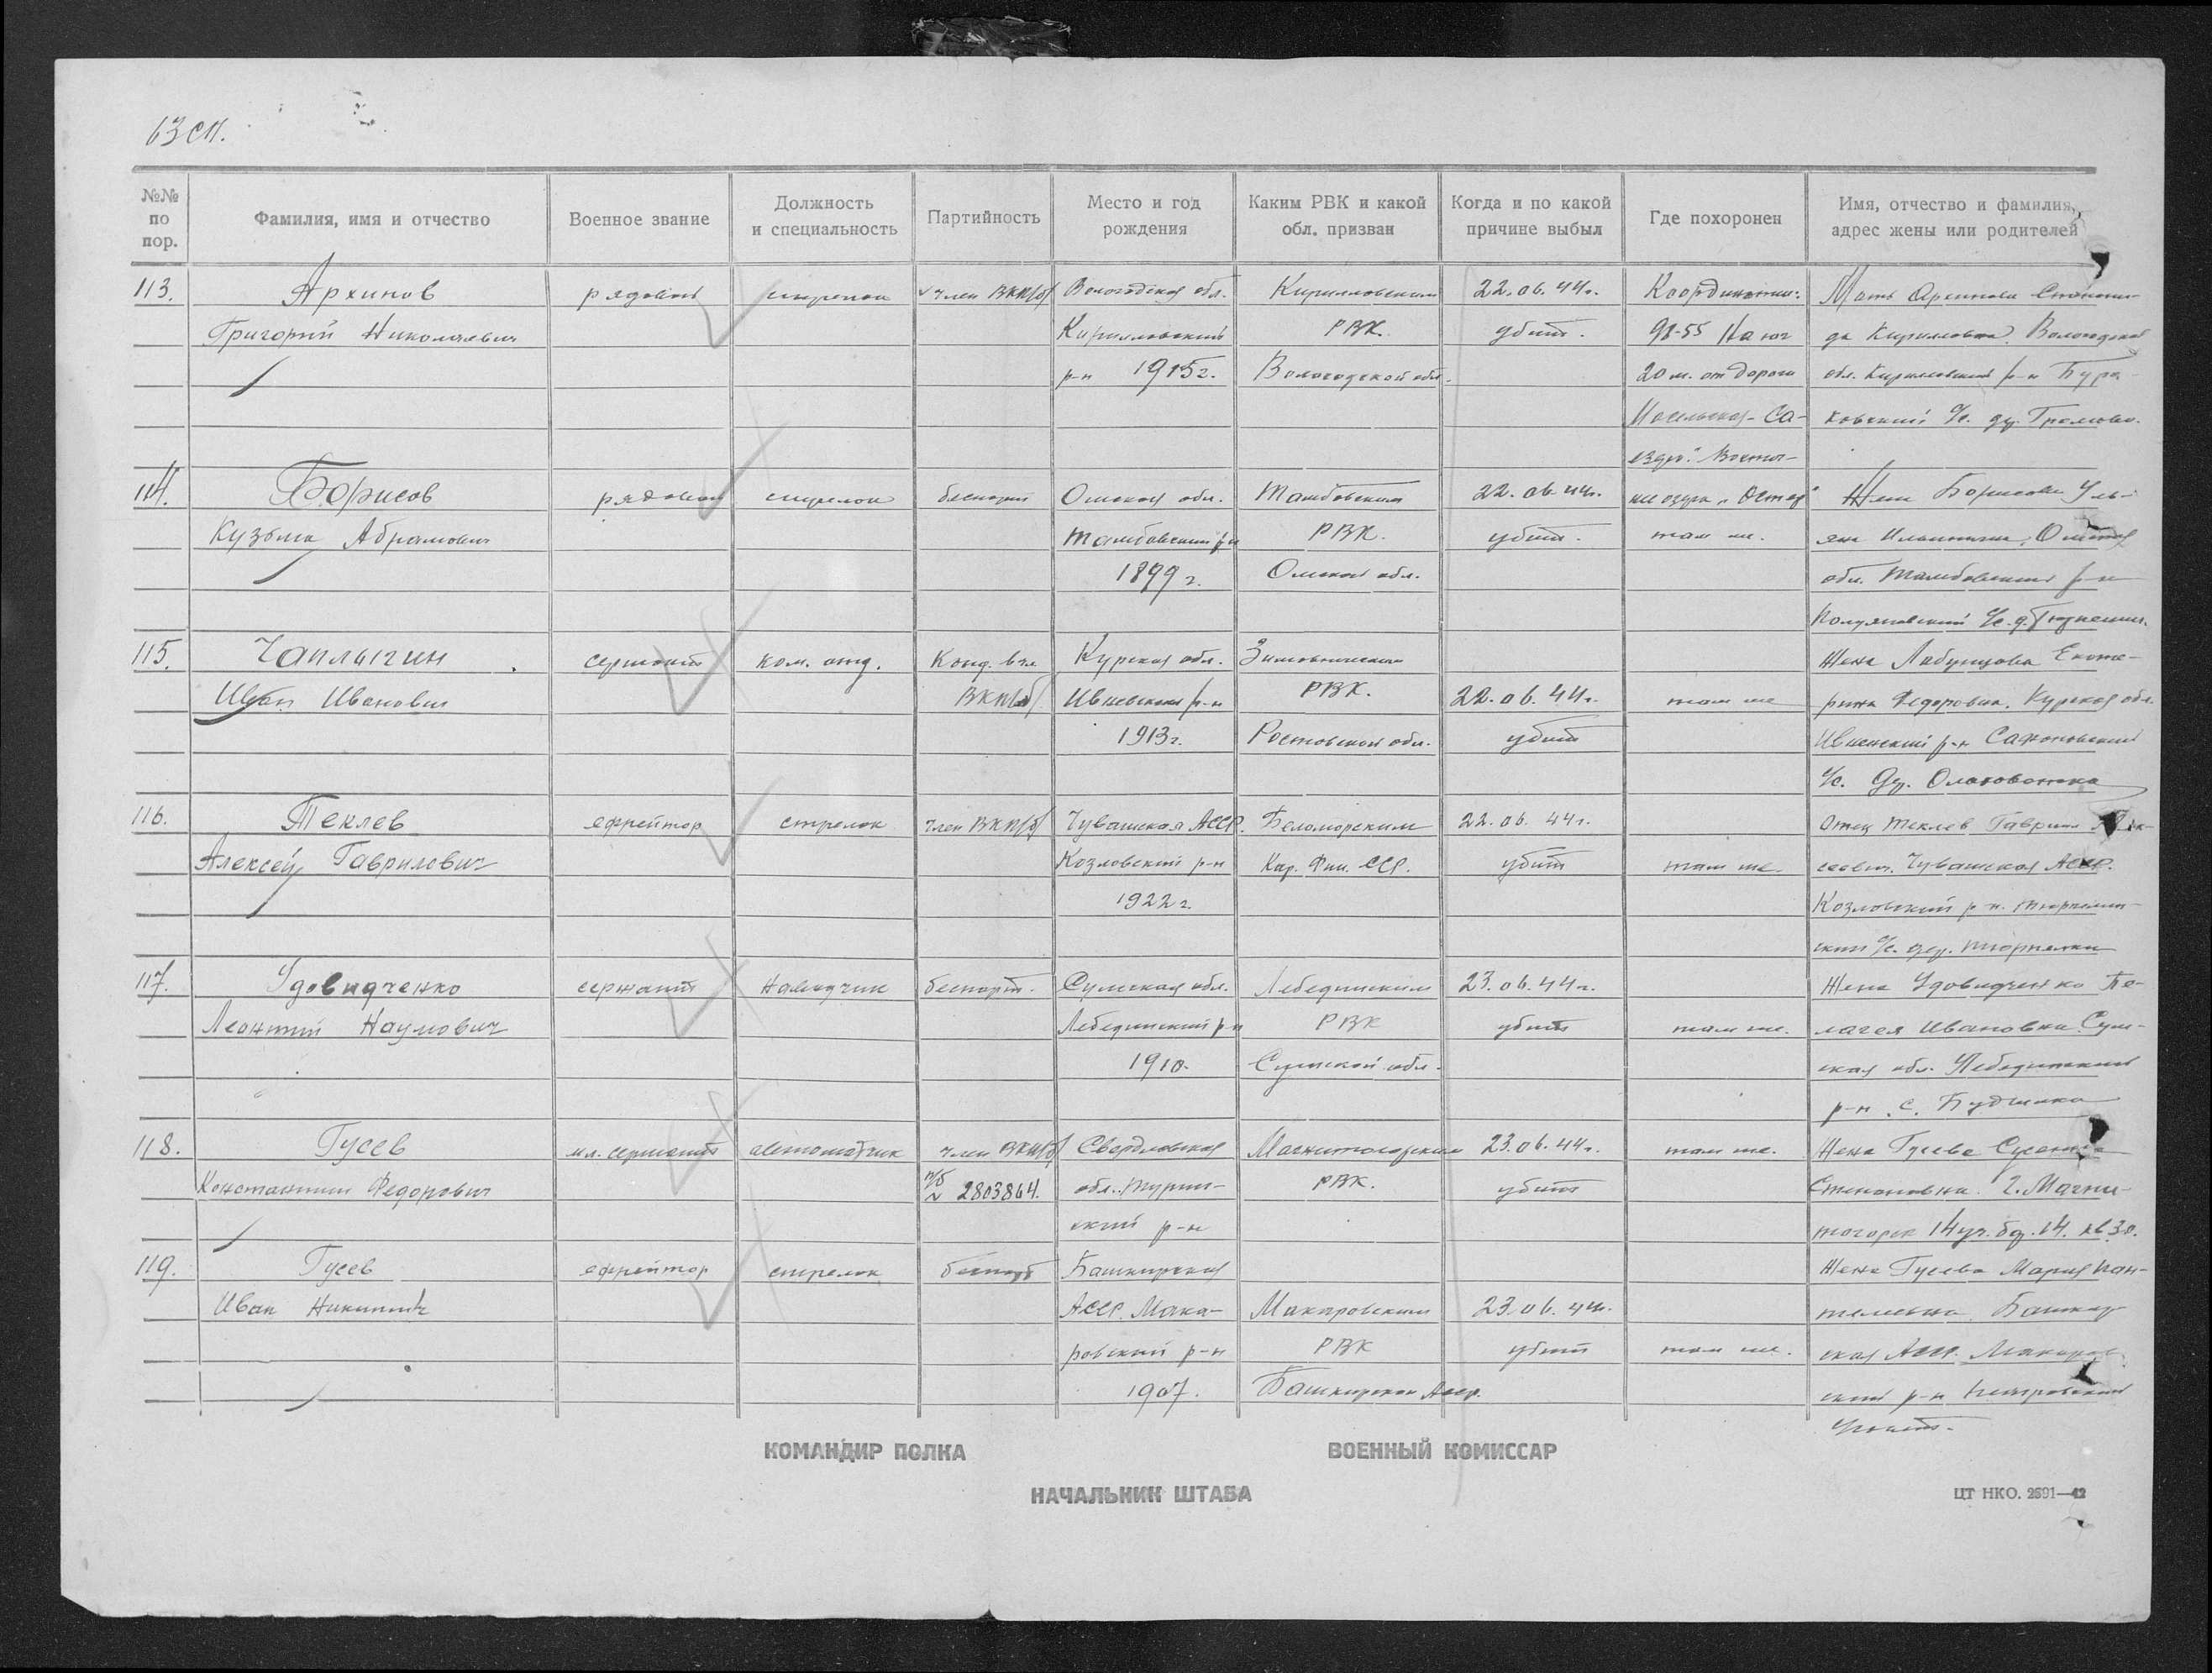 63 сп.
№№ по пор.
Фамилия, имя и отчество
Военное звание
Должность и специальность
Партийность
Место и год рождения
Каким РВК и какой обл. призван
Когда и по какой причине выбыл
Где похоронен
Имя, отчество и фамилия, адрес жены или родителей
113. Архипов рядовой стрелок член ВКП/б/ Вологодская обл. Кирилловским 22.06.44г. Координаты: Мать Архипова
Григорий Николаевич Кирилловский РВК. убит. 98-55 На юг да Кирилловна. Вологодской
р-н 1915г. Вологодской обл. 20 м. от дороги обл. Кирилловский р-н Бура-
Са- ковский с/с. др. Громово.
114. Борисов рядовой стрелок беспарт Омская обл. Тамбовским 22.06.44г. Жена Борисова Уль-
Кузьма Абрамович Тамбовский р-н РВК. убит. там же. яна Ильинична, Омская
1899г. Омской обл. обл. Тамбовский р-н
с/с. д.
115. Чаплыгин сержант ком. отд. Канд. в чл. Курская обл. Зимовническим Жена Екате-
Иван Иванович ВКП/б/ Ивневский р-н РВК. 22.06.44г. там же рина Федоровна. Курская обл.
1913г. Ростовской обл. убит Ивненский р-н
с/с. др.
116. Теклев ефрейтор стрелок член ВКП/б/ Чувашская АССР. Беломорским 22.06.44г. Отец Теклев Гаврил
Алексей Гаврилович Козловский р-н Кар. Фин. ССР. убит там же. сеевич. Чувашская АССР.
1922г. Козловский р-н.
ский с/с. дер.
117. Удовидченко сержант наводчик беспарт. Сумская обл. Лебединским 23.06.44г. Жена Удовидченко Пе-
Леонтий Наумович Лебединский р-н РВК убит там же. лагея Ивановна Сум-
1910. Сумской обл. ская обл. Лебединский
р-н. с.
118. Гусев мл. сержант автоматчик член ВКП/б/ Свердловская Магнитогорским 23.06.44г. там же. Жена Гусева
Константин Федорович п/б № 2803864. обл. Турин- РВК. убит Степановна. г. Магни-
ский р-н тогорск 14 уч. бд. 14. кв 30.
119. Гусев ефрейтор стрелок беспарт Башкирская Жена Гусева Мария Пан-
Иван Никитич АССР. Мака- Макаровским 23.06.44г. телеевна. Башкир
ровский р-н РВК убит там же. ская АССР. Макаров
1907. Башкирской АССР. ский р-н Петровский
КОМАНДИР ПОЛКА
ВОЕННЫЙ КОМИССАР
НАЧАЛЬНИК ШТАБА
ЦТ НКО. 2691—42